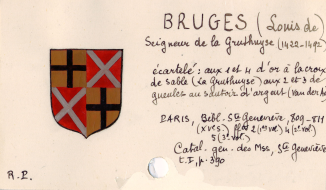 BRUGES (Louis de)
Seigneur de la Gruthuyse (1422-1492)
écartelé : aux 1 et 4 d'or à la croix
de sable (La Gruthuyse) aux 2 et 3 de
gueules au sautoir d'argent (Van der Aa)
PARIS, Bibl. Ste Geneviève, 809-811
(XVe s.) 2 (1er vol.) 4 (2e vol.)
5 (3e vol.)
Catal. gén. des Mss, Ste Geneviève
t. I, p. 390
R.P.